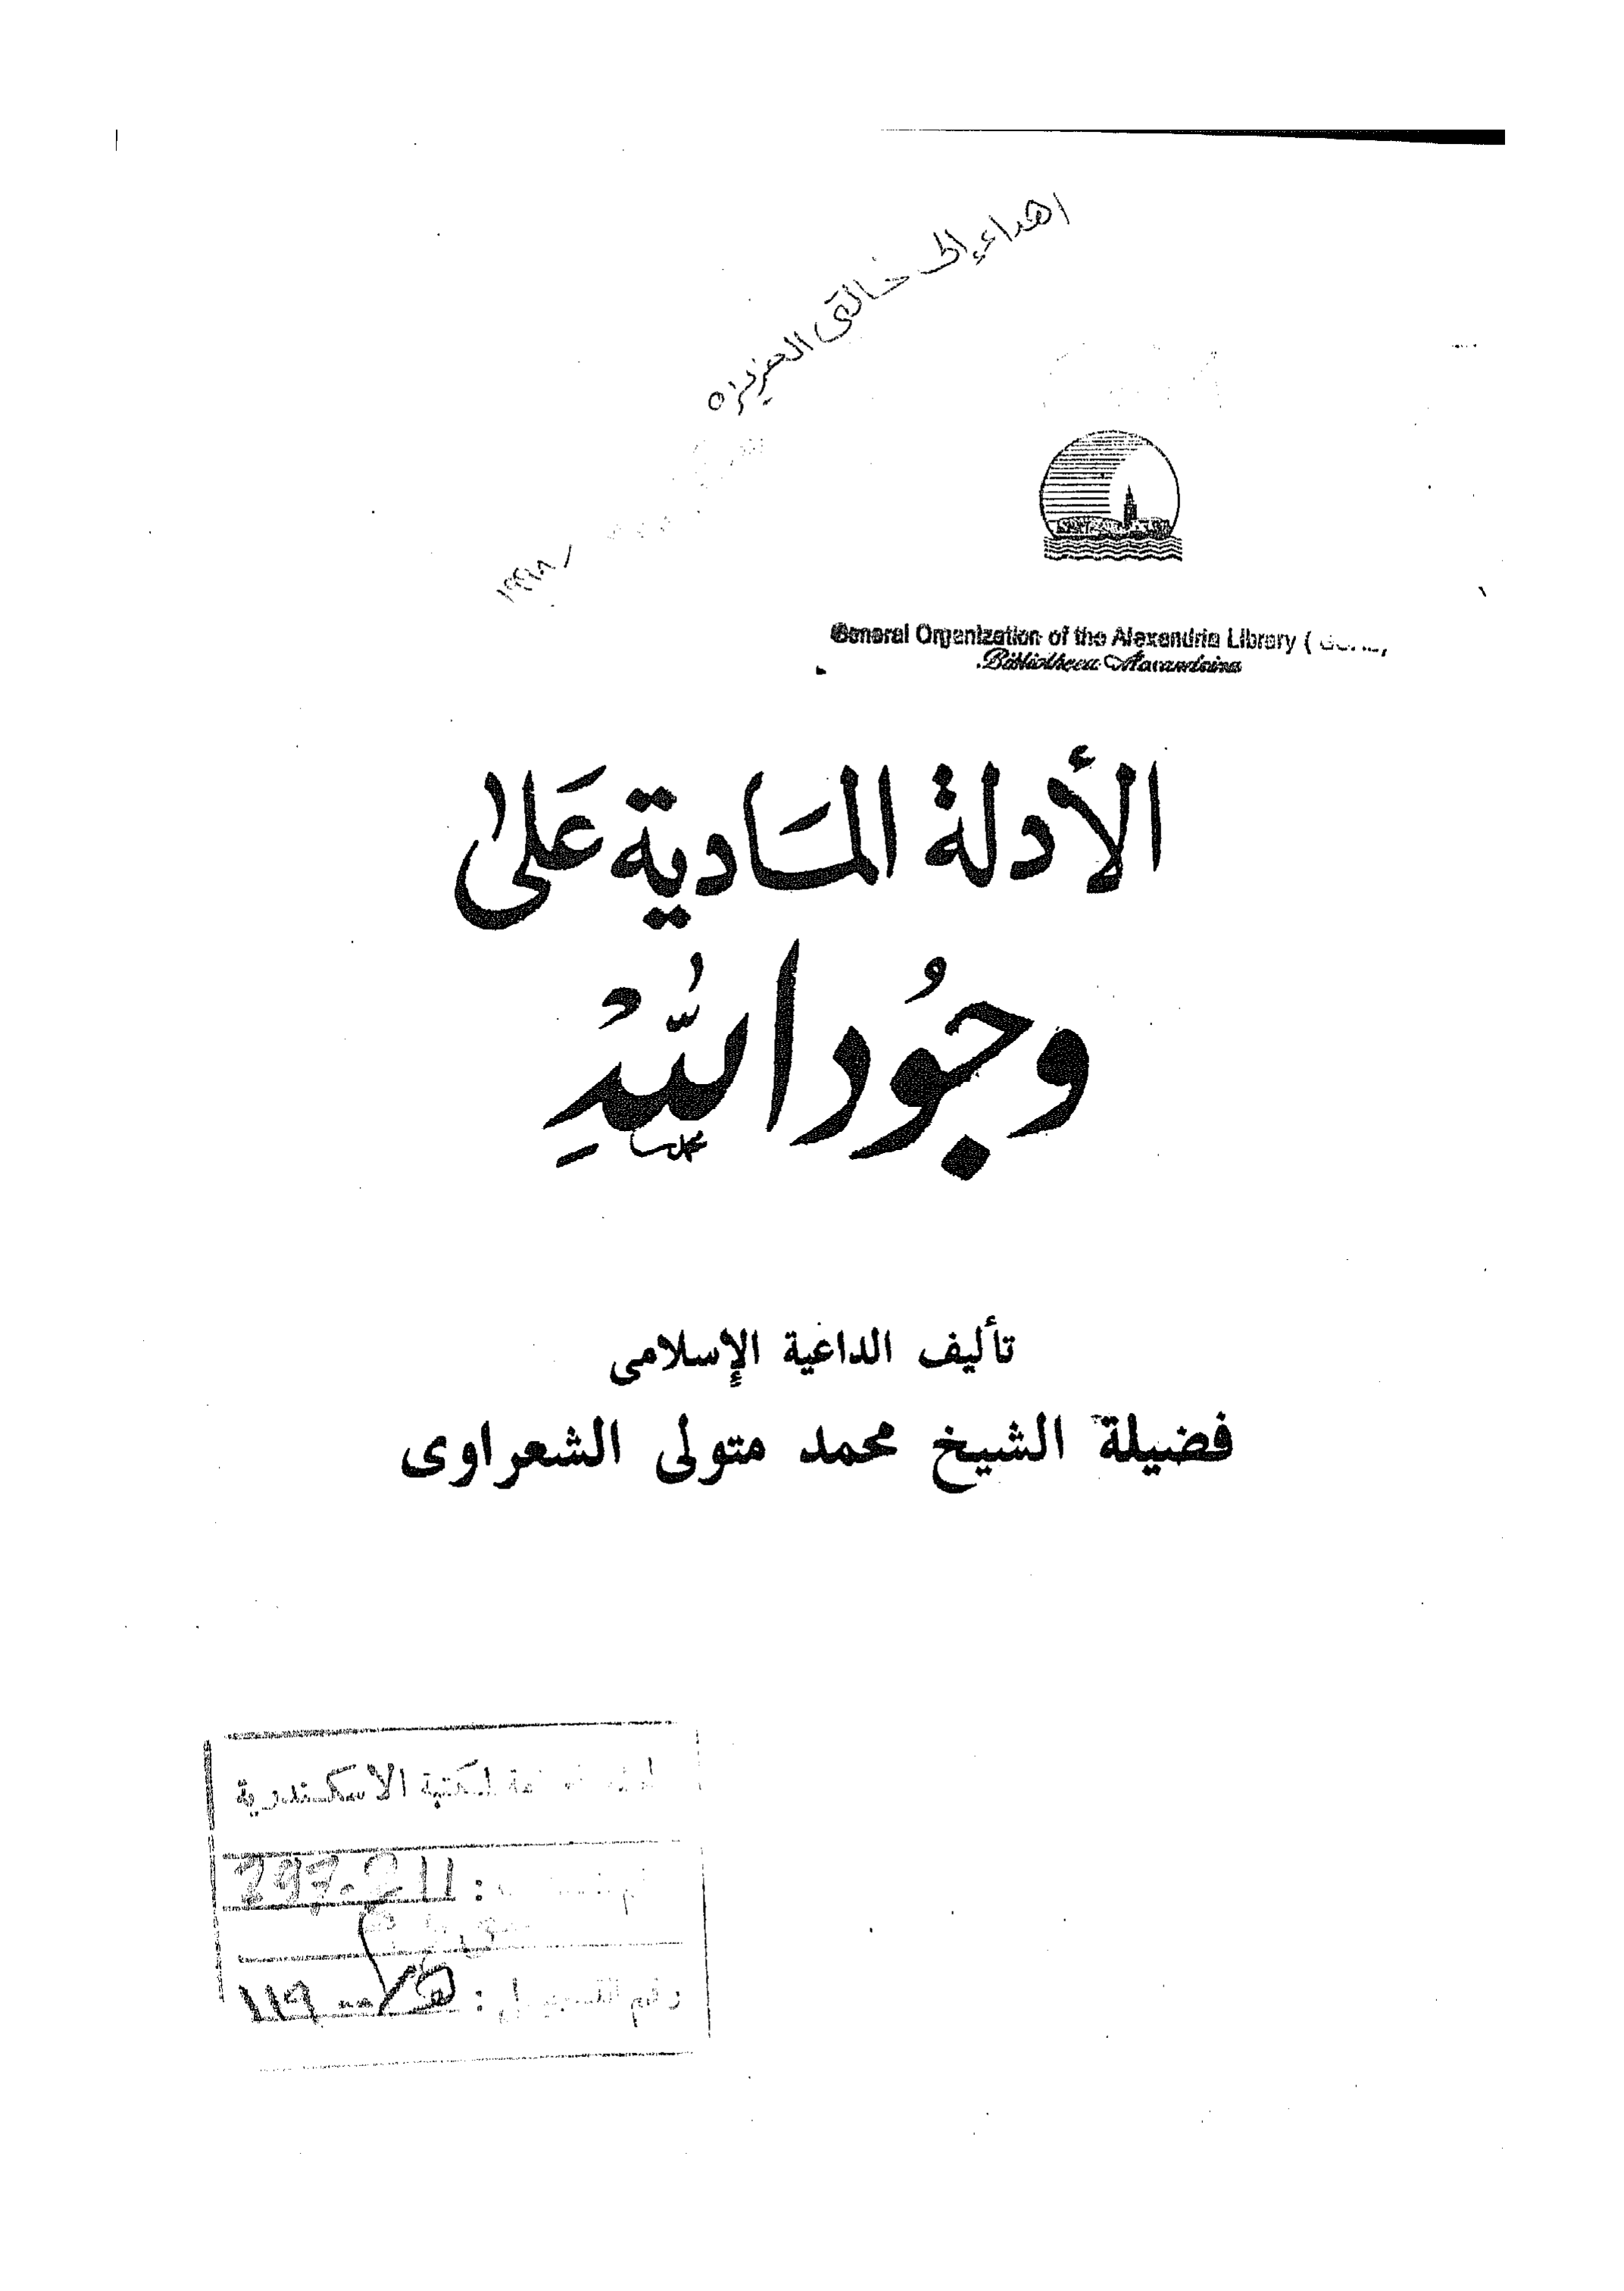 اهداء إلى خالتى العزيزة
١٩٩٨/
General Organization of the Alexandria Library (
Bibliotheca Alexandrina
الأدلة المَادية عَلى
وجُود اللَّهِ
تأليف الداعية الإسلامى
فضيلة الشيخ محمد متولى الشعراوى
لمكتبة الاسكندرية
297.211 :
رقم التسجيل :